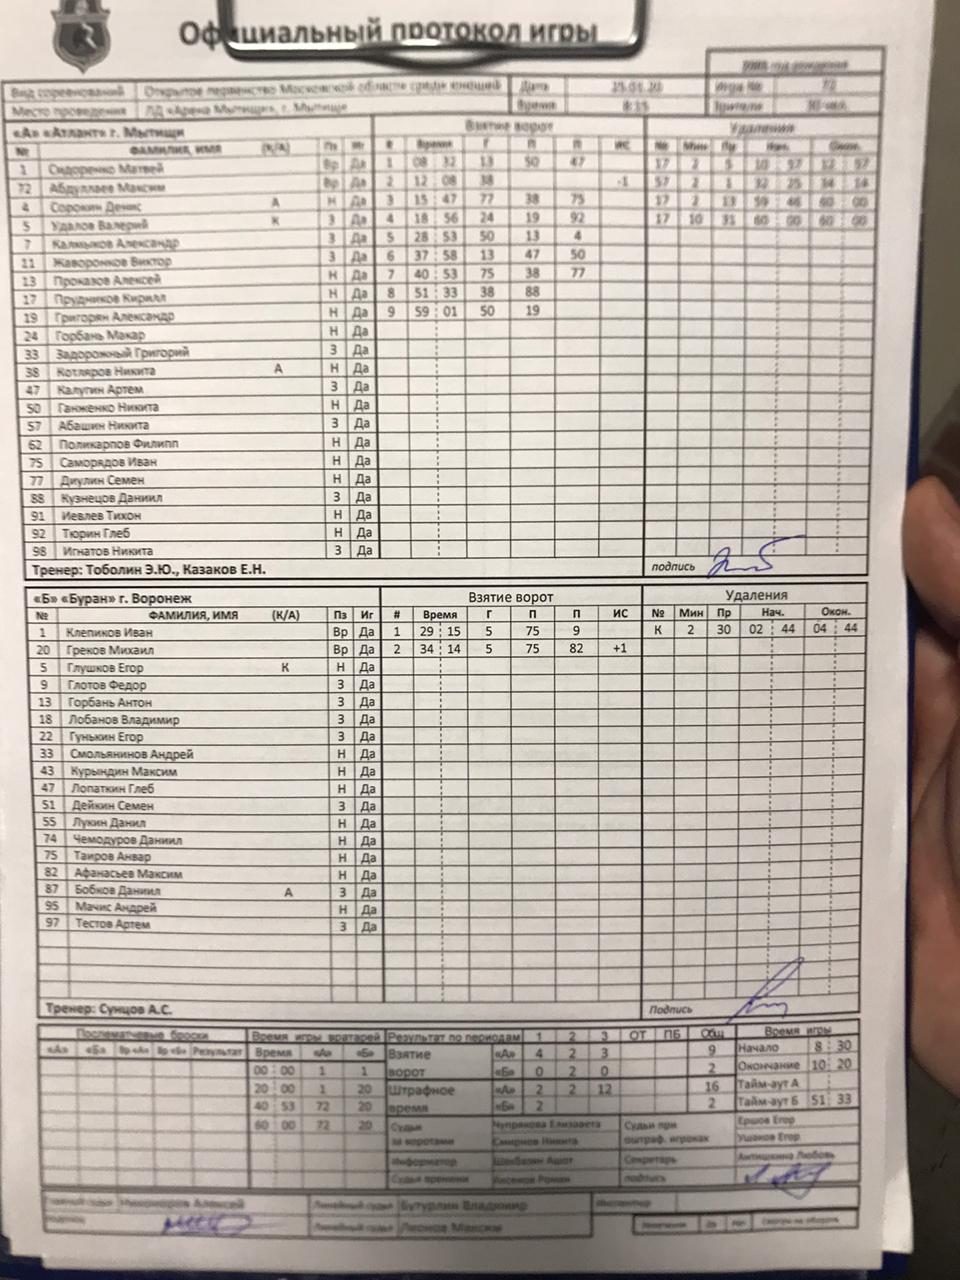 Официальный протокол игры
Вид соревнований Открытое первенство Московской области среди юношей Дата Игра №
Место проведения ЛД «Арена Мытищи», г. Мытищи Время 8:15 Зрители
«А» «Атлант» г. Мытищи Взятие ворот Удаления
№ ФАМИЛИЯ, ИМЯ (К/А) Пз Иг # Время Г П П ИС № Мин Пр Нач. Окон.
1 Сидоренко Матвей Вр Да 1 08 : 32 13 50 47 17 2 5 10 : 57 12 : 57
72 Абдуллаев Максим Вр Да 2 12 : 08 38 -1 57 2 1 32 : 25 34 : 14
4 Сорокин Денис А Н Да 3 15 : 47 77 38 75 17 2 13 59 : 46 60 : 00
5 Удалов Валерий К З Да 4 18 : 56 24 19 92 17 10 31 60 : 00 60 : 00
7 Калмыков Александр З Да 5 28 : 53 50 13 4
11 Жаворонков Виктор З Да 6 37 : 58 13 47 50
13 Проказов Алексей Н Да 7 40 : 53 75 38 77
17 Прудников Кирилл Н Да 8 51 : 33 38 88
19 Григорян Александр Н Да 9 59 : 01 50 19
24 Горбань Макар Н Да
33 Задорожный Григорий З Да
38 Котляров Никита А Н Да
47 Калугин Артем З Да
50 Ганженко Никита Н Да
57 Абашин Никита З Да
62 Поликарпов Филипп Н Да
75 Саморядов Иван Н Да
77 Диулин Семен Н Да
88 Кузнецов Даниил З Да
91 Иевлев Тихон Н Да
92 Тюрин Глеб Н Да
98 Игнатов Никита З Да
Тренер: Тоболин Э.Ю., Казаков Е.Н. подпись
«Б» «Буран» г. Воронеж Взятие ворот Удаления
№ ФАМИЛИЯ, ИМЯ (К/А) Пз Иг # Время Г П П ИС № Мин Пр Нач. Окон.
1 Клепиков Иван Вр Да 1 29 : 15 5 75 9 К 2 30 02 : 44 04 : 44
20 Греков Михаил Вр Да 2 34 : 14 5 75 82 +1
5 Глушков Егор К Н Да
9 Глотов Федор З Да
13 Горбань Антон З Да
18 Лобанов Владимир З Да
22 Гунькин Егор З Да
33 Смольянинов Андрей Н Да
43 Курындин Максим Н Да
47 Лопаткин Глеб Н Да
51 Дейкин Семен З Да
55 Лукин Данил Н Да
74 Чемодуров Даниил Н Да
75 Таиров Анвар Н Да
82 Афанасьев Максим Н Да
87 Бобков Даниил А З Да
95 Мачис Андрей Н Да
97 Тестов Артем З Да
Тренер: Сунцов А.С. Подпись
Послематчевые броски Время игры вратарей Результат по периодам 1 2 3 ОТ ПБ Общ Время игры
«А» «Б» Вр «А» Вр «Б» Результат Время «А» «Б» Взятие ворот «А» 4 2 3 9 Начало 8 : 30
00 : 00 1 1 «Б» 0 2 0 2 Окончание 10 : 20
20 : 00 1 20 Штрафное время «А» 2 2 12 16 Тайм-аут А
40 : 53 72 20 «Б» 2 2 Тайм-аут Б 51 : 33
60 : 00 72 20 Судьи за воротами Чупрякова Елизавета Судьи при оштраф. игроках Ершов Егор
Смирнов Никита Ушаков Егор
Информатор Ашот Секретарь Антишкина Любовь
Судья времени Аксенов Роман подпись
Главный судья Алексей Линейный судья Бутурлин Владимир Инспектор
подпись Линейный судья Леонов Максим Замечания Да Нет Смотри на обороте